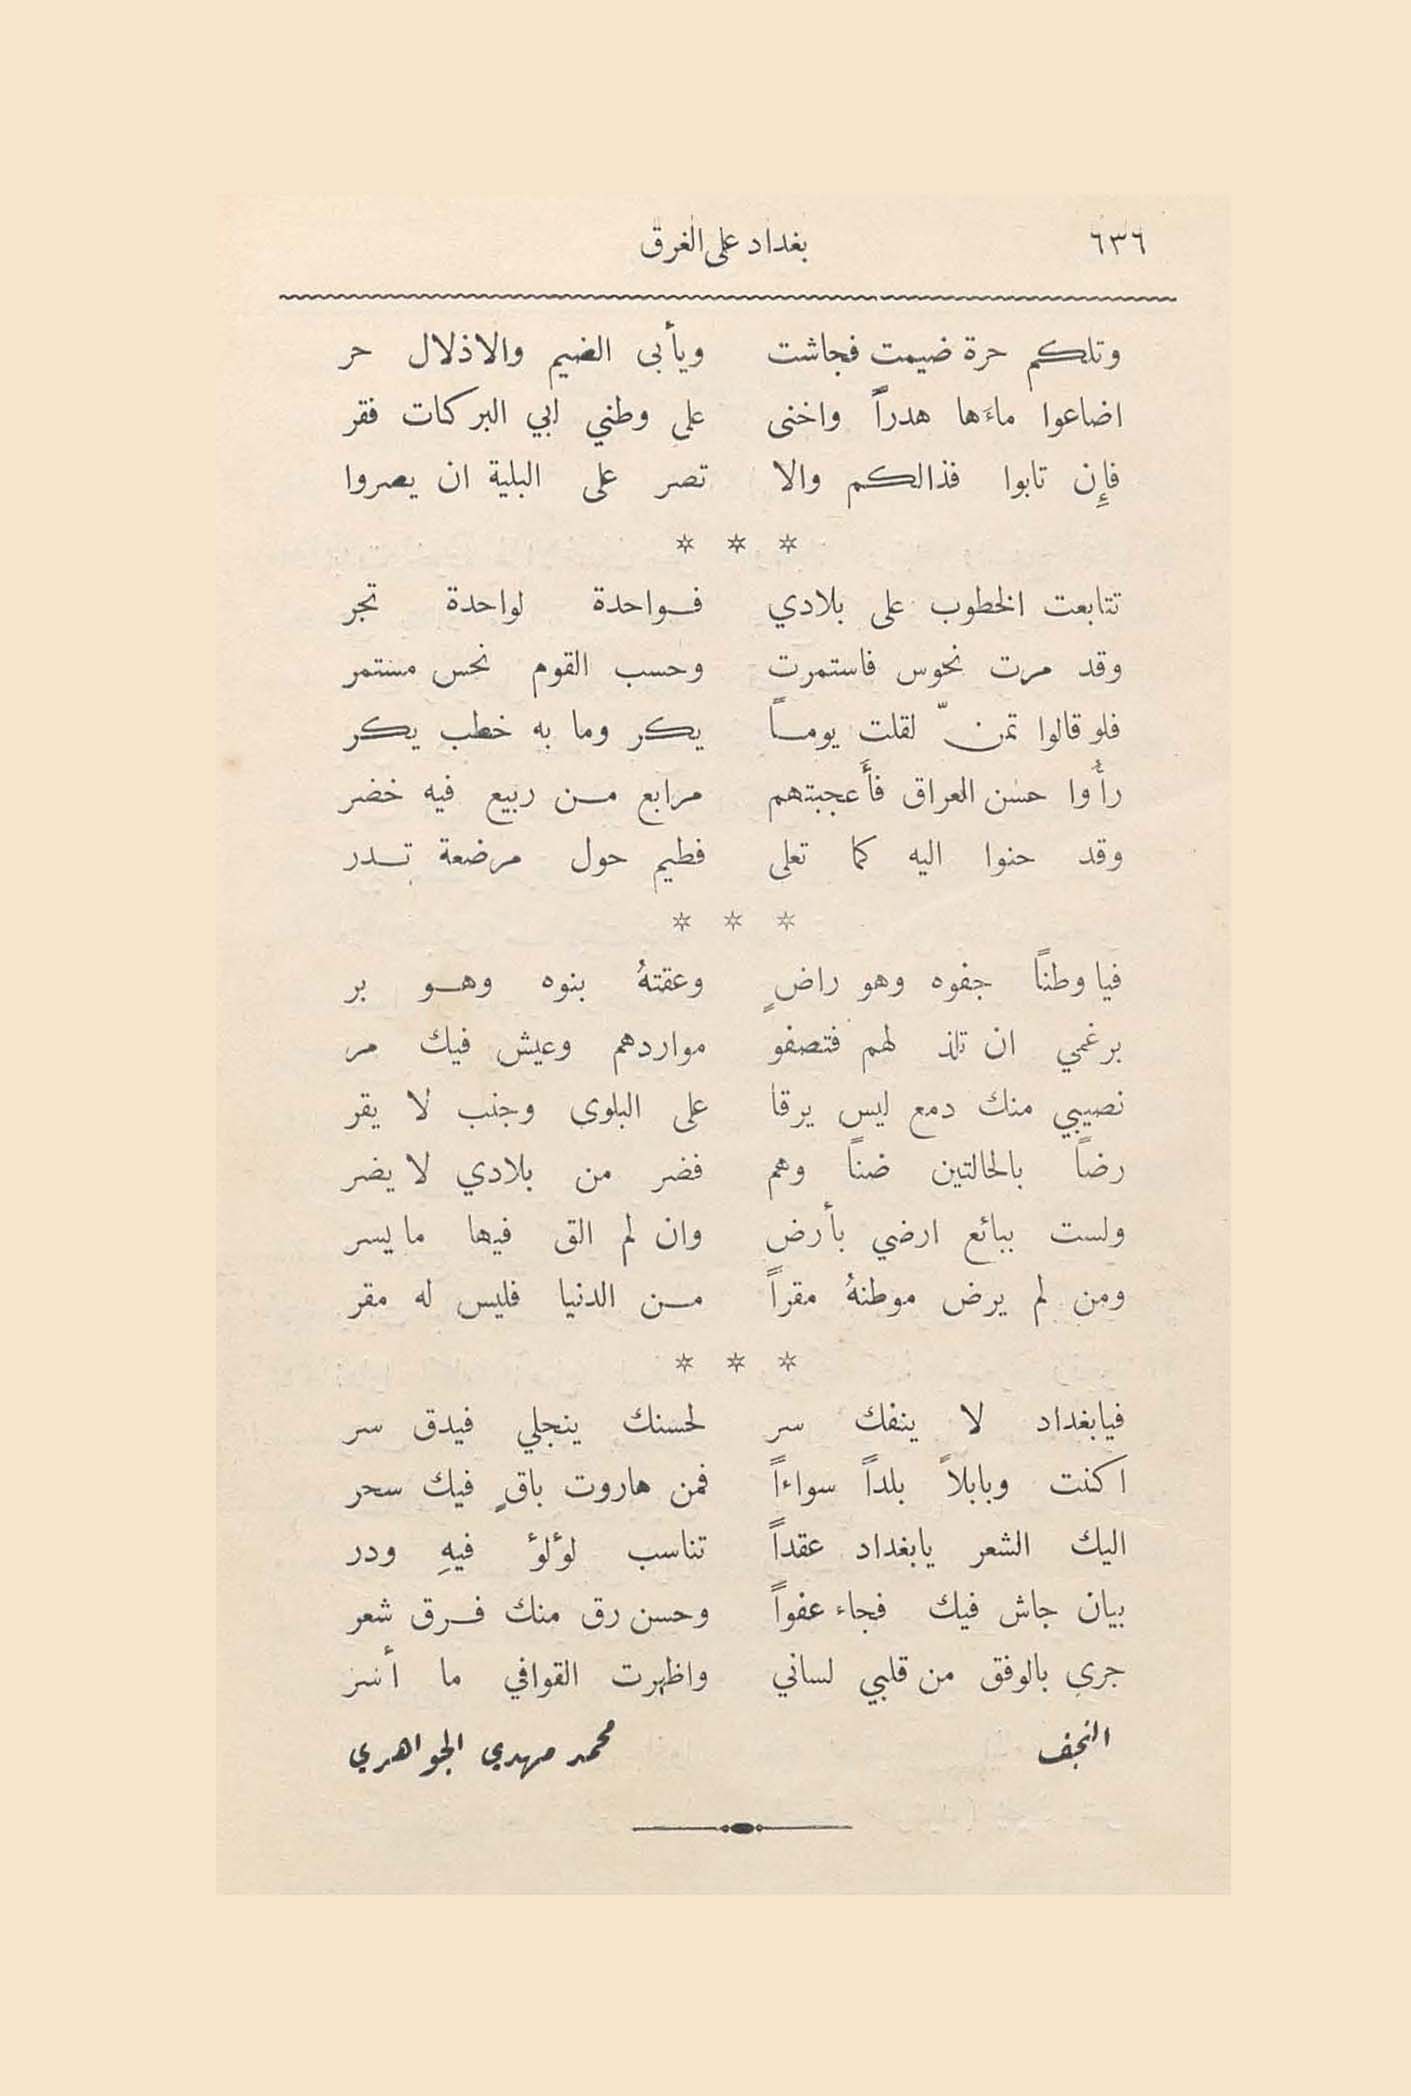 ٦٣٦ بغداد على الغرق
وتلكم حرة ضيمت فجاشت ويأبى الضيم والاذلال حر
اضاعوا ماءَها هدراً واخنى على وطني ابي البركات فقر
فإِن تابوا فذالكم والا تصر على البلية ان يصروا
* * *
تتابعت الخطوب على بلادي فواحدة لواحدة تجر
وقد مرت نحوس فاستمرت وحسب القوم نحس مستمر
فلو قالوا تمنّ لقلت يوماً يكر وما به خطب يكر
رأَوا حسن العراق فأَعجبتهم مرابع من ربيع فيه خضر
وقد حنوا اليه كما تعلى فطيم حول مرضعة تدر
* * *
فيا وطنًا جفوه وهو راضٍ وعقتهُ بنوه وهو بر
برغمي ان تلذ لهم فتصفو مواردهم وعيش فيك مر
نصيبي منك دمع ليس يرقا على البلوى وجنب لا يقر
رضاً بالحالتين ضناً وهم فضر من بلادي لا يضر
ولست ببائع ارضي بأرض وان لم الق فيها ما يسر
ومن لم يرض موطنهُ مقراً من الدنيا فليس له مقر
* * *
فيابغداد لا ينفك سر لحسنك ينجلي فيدق سر
اكنت وبابلاً بلداً سواءاً فمن هاروت باقٍ فيك سحر
اليك الشعر يابغداد عقداً تناسب لؤلؤ فيهِ ودر
بيان جاش فيك فجاء عفواً وحسن رق منك فرق شعر
جرى بالوفق من قلبي لساني واظهرت القوافي ما أسر
النجف محمد مهدي الجواهري